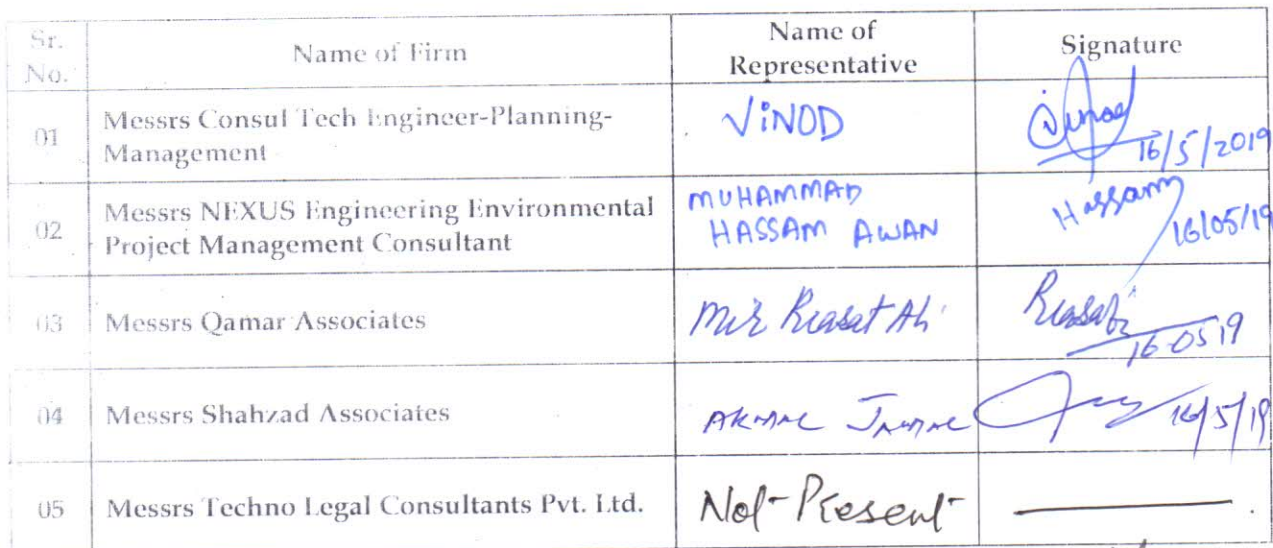 Sr. No. Name of Firm Name of Representative Signature
01 Messrs Consul Tech Engineer-Planning-Management ViNOD Vinod 16/5/2019
02 Messrs NEXUS Engineering Environmental Project Management Consultant MUHAMMAD HASSAM AWAN Hassam 16/05/19
03 Messrs Qamar Associates Mir Reasat Ali Reasat 16-05 19
04 Messrs Shahzad Associates AKMAL JAMAL 16/5/19
05 Messrs Techno Legal Consultants Pvt. Ltd. Not-Present